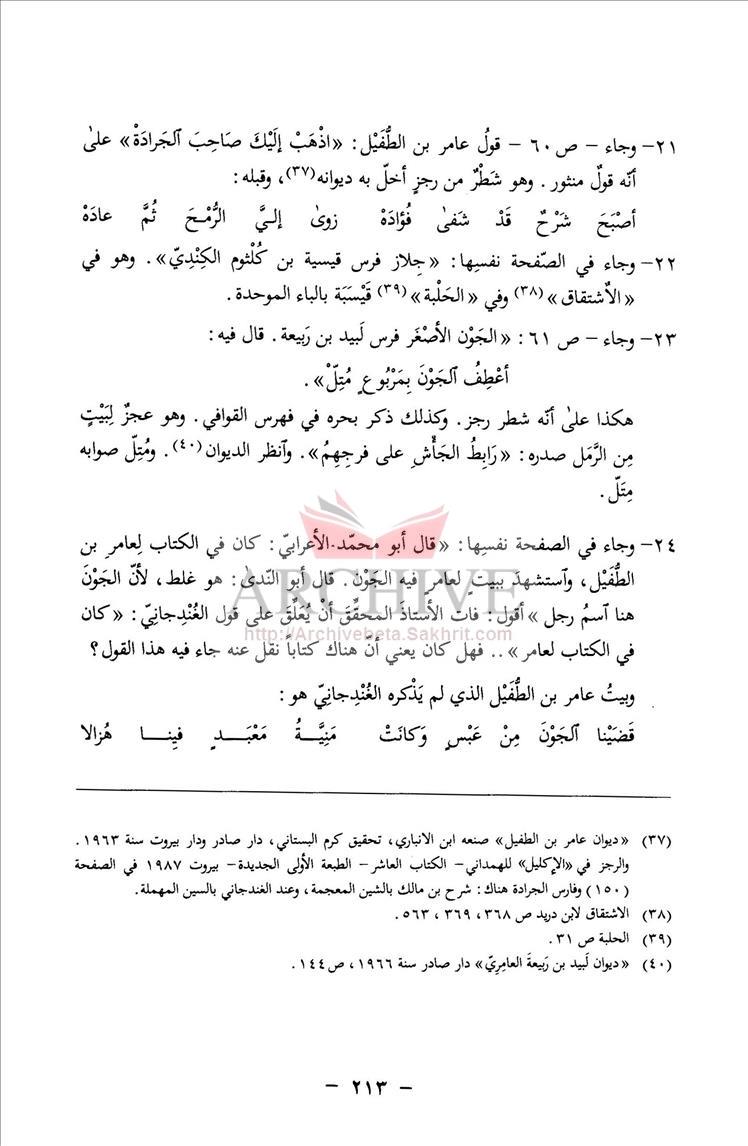 ٢١- وجاء - ص ٦٠ - قولُ عامر بن الطُّفَيْل: «اذْهَبْ إلَيْكَ صَاحِبَ ٱلجَرادَةْ» علىٰ
أنّه قولٌ منثور. وهو شَطْرٌ من رجزٍ أخلّ به ديوانه(٣٧)، وقبله:
أصْبَحَ شَرْحٌ قَدْ شَفىٰ فُؤادَهْ زوىٰ إلـيَّ الرُّمْـحَ ثُمَّ عادَهْ
٢٢- وجاء في الصّفحة نفسِها: «جِلاز فرس قيسية بن كُلْثوم الكِنْدِيّ». وهو في
«الاٌشتقاق»(٣٨) وفي «الحَلْبة»(٣٩) قَيْسَبَة بالباء الموحدة.
٢٣- وجاء - ص ٦١: «الجَوْن الأصْغَر فرس لَبيد بن رَبيعة. قال فيه:
أعْطِفُ ٱلجَوْنَ بِمَرْبُوعٍ مُتِلّْ».
هكذا علىٰ أنّه شطر رجز. وكذلك ذكر بحره في فهرس القوافي. وهو عجزٌ لِبَيْتٍ
مِن الرَّمَل صدره: «رَابِطُ الجَأْشِ على فرجِهِمُ». وٱنظر الديوان(٤٠). ومُتِلّ صوابه
مِتَلّ.
٢٤- وجاء في الصفحة نفسِها: «قال أبو محمّد الأعرابيّ: كان في الكتاب لِعامرِ بن
الطُّفَيْل، وٱستشهدَ ببيتٍ لعامرٍ فيه الجَوْن. قال أبو النّدىٰ: هو غلط، لأنّ الجَوْنَ
هنا ٱسمُ رجل» أقول: فات الأُستاذَ المحقِّقَ أنْ يُعَلِّقَ علىٰ قول الغُنْدِجانيّ: «كان
في الكتاب لعامر».. فهل كان يعني أنّ هناك كتاباً نقل عنه جاء فيه هذا القول؟
وبيتُ عامر بن الطُّفَيْل الذي لم يَذْكره الغُنْدِجانيّ هو:
قَضَيْنا ٱلجَوْنَ مِنْ عَبْسٍ وَكانَتْ مَنِيَّـةُ مَعْبَـدٍ فينـا هُزالا
(٣٧) «ديوان عامر بن الطفيل» صنعه ابن الانباري، تحقيق كرم البستاني، دار صادر ودار بيروت سنة ١٩٦٣.
والرجز في «الإكليل» للهمداني- الكتاب العاشر- الطبعة الأولى الجديدة- بيروت ١٩٨٧ في الصفحة
(١٥٠) وفارس الجرادة هناك: شرح بن مالك بالشين المعجمة، وعند الغندجاني بالسين المهملة.
(٣٨) الاشتقاق لابن دريد ص ٣٦٨، ٣٦٩، ٥٦٣.
(٣٩) الحلبة ص ٣١.
(٤٠) «ديوان لَبيد بن رَبيعةَ العامِريّ» دار صادر سنة ١٩٦٦، ص ١٤٤.
ARCHIVE
http://Archivebeta.Sakhrit.com
- ٢١٣ -